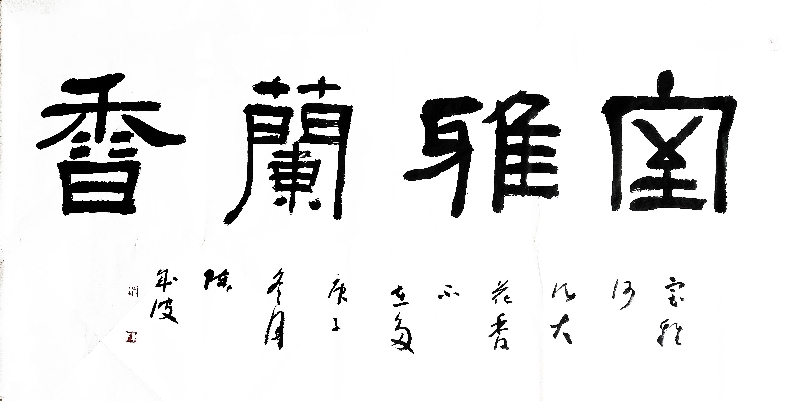 室雅蘭香
室雅
何
須大
花香
不
在多
庚子
冬月
陳